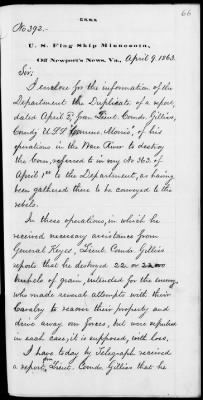 66
No. 392.
U. S. Flag Ship Minnesota,
Off Newport's News, Va., April 9, 1863.
Sir:
I enclose for the information of the
Department the Duplicate of a report,
dated April 8, from Lieut. Comdr. Gillis,
Comdg U.S.S. "Commo. Morris", of his
operations in the Ware River to destroy
the Corn, referred to in my No. 362 of
April 1st to the Department, as having
been gathered there to be conveyed to the
rebels.
In these operations, in which he
received necessary assistance from
General Keyes, Lieut. Comdr. Gilliss
reports that he destroyed 22
bushels of grain, intended for the enemy,
who made several attempts with their
Cavalry to rescue their property and
drive away our forces, but were repulsed
in each case, it is supposed, with loss.
I have today by Telegraph received
a report from Lieut. Comdr. Gilliss that he